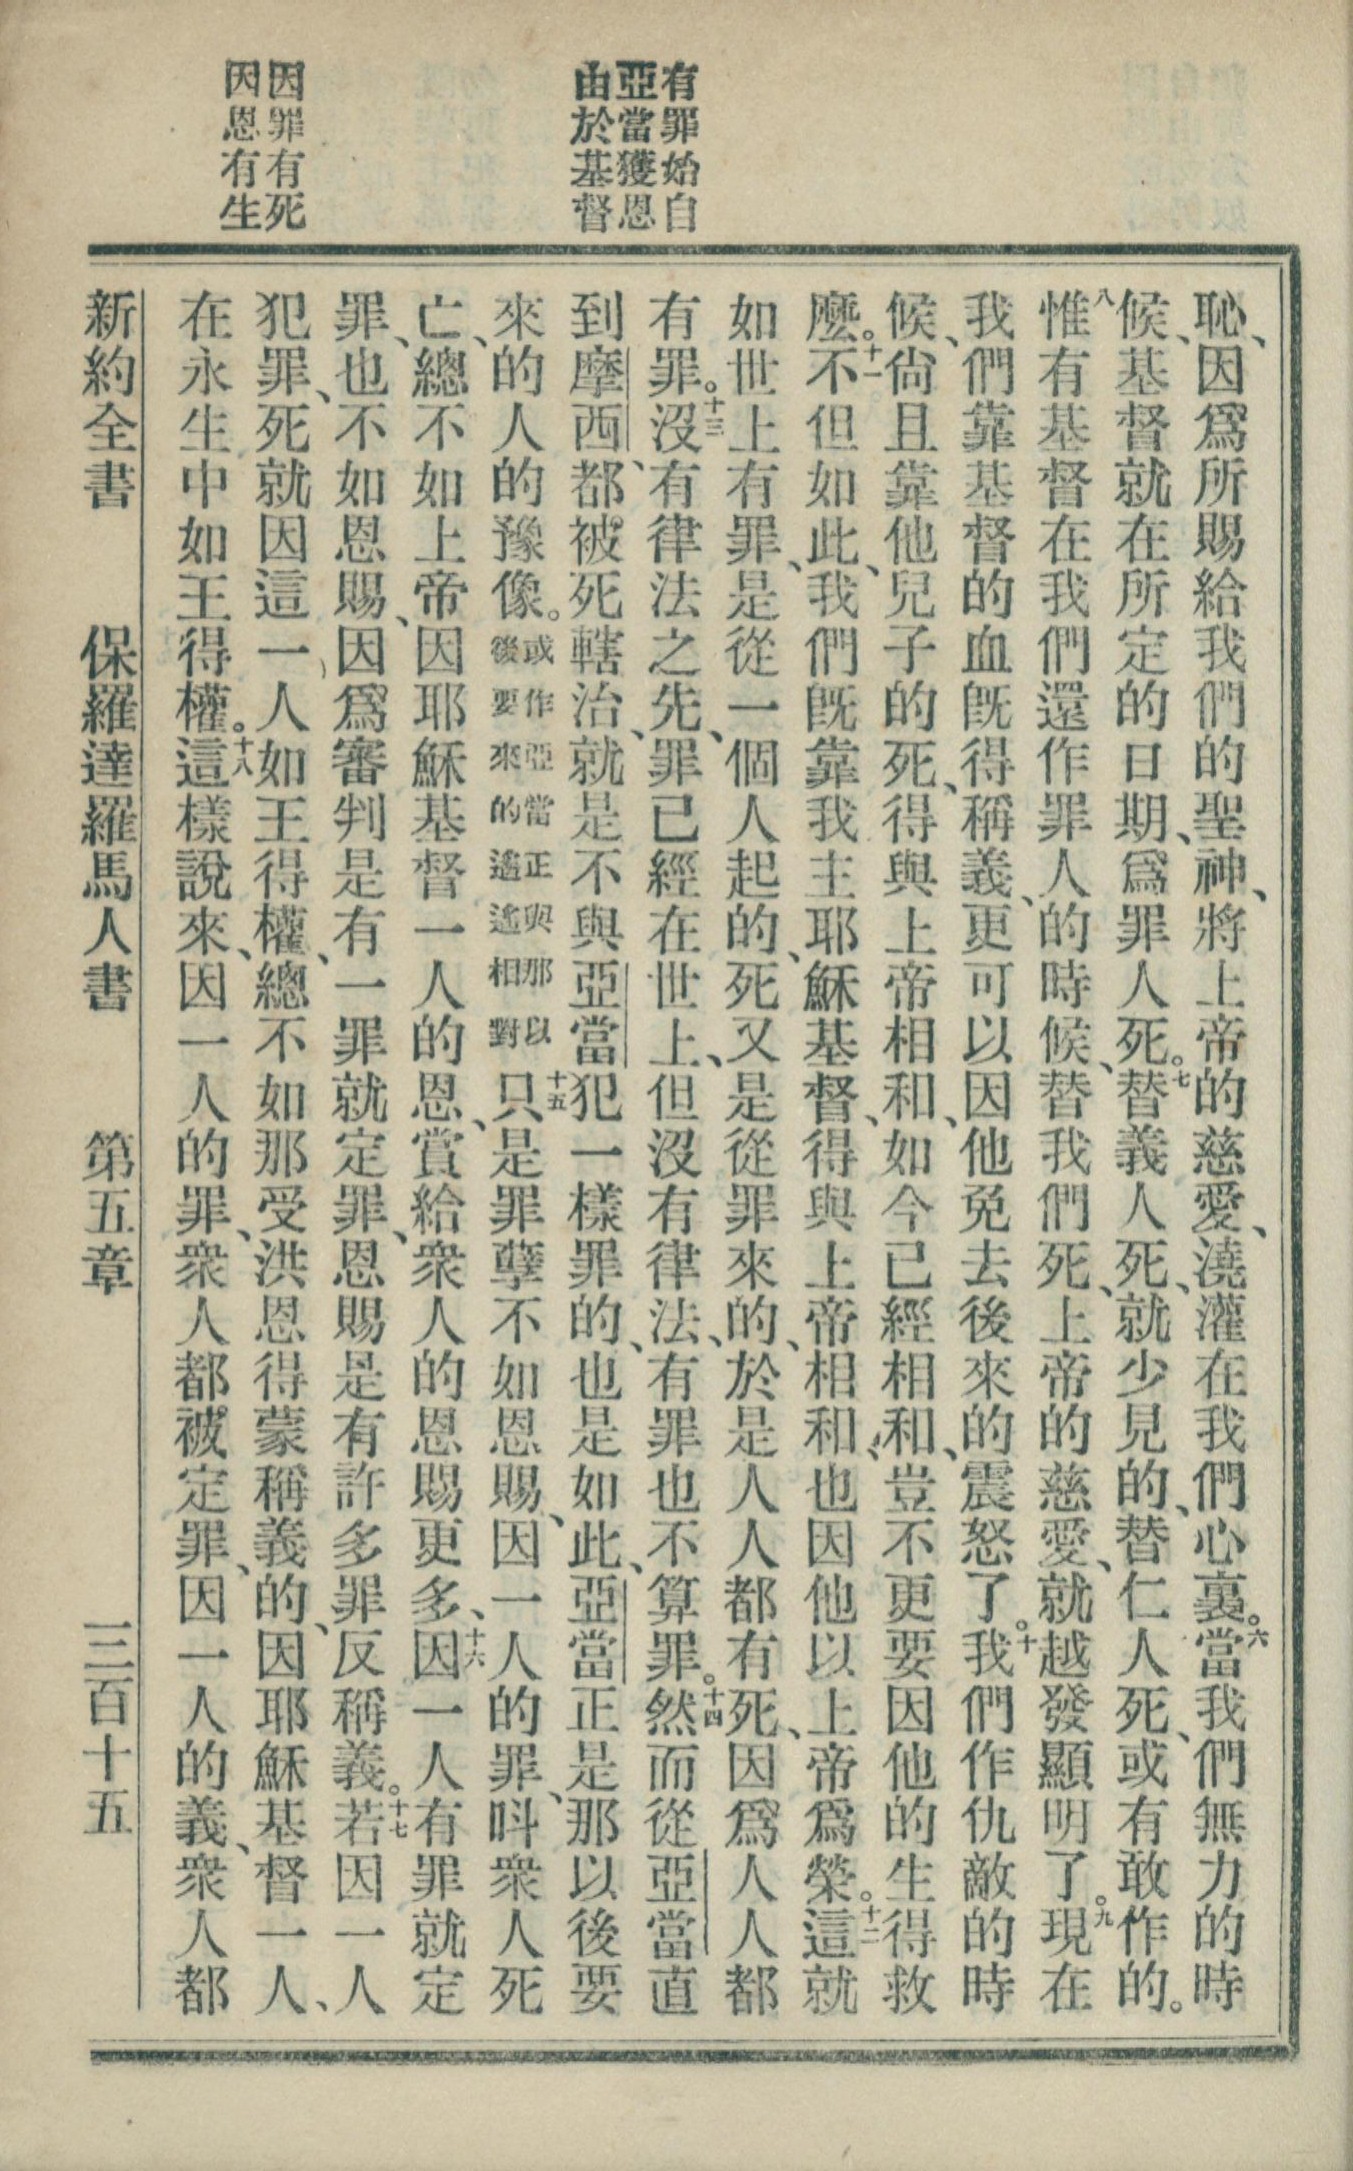 有罪始自
亞當獲恩
由於基督
因罪有死
因恩有生
恥、因爲所賜給我們的聖神、將上帝的慈愛、澆灌在我們心裏。六當我們無力的時
候、基督就在所定的日期、爲罪人死。七替義人死、就少見的、替仁人死、或有敢作的。
八惟有基督在我們還作罪人的時候、替我們死、上帝的慈愛、就越發顯明了。九現在
我們靠基督的血旣得稱義、更可以因他免去後來的震怒了。十我們作仇敵的時
候、尙且靠他兒子的死、得與上帝相和、如今已經相和、豈不更要因他的生得救
麽。十一不但如此、我們旣靠我主耶穌基督、得與上帝相和、也因他以上帝爲榮。十二這就
如世上有罪、是從一個人起的、死又是從罪來的、於是人人都有死、因爲人人都
有罪。十三沒有律法之先、罪已經在世上、但沒有律法、有罪也不算罪。十四然而從亞當直
到摩西、都被死轄治、就是不與亞當犯一樣罪的、也是如此、亞當正是那以後要
來的人的豫像。或作亞當正與那以後要來的遙遙相對十五只是罪孽不如恩賜、因一人的罪、呌衆人死
亡、總不如上帝因耶穌基督一人的恩、賞給衆人的恩賜更多、十六因一人有罪就定
罪、也不如恩賜、因爲審判是有一罪就定罪、恩賜是有許多罪反稱義。十七若因一人
犯罪、死就因這一人如王得權、總不如那受洪恩得蒙稱義的、因耶穌基督一人、
在永生中如王得權。十八這樣說來、因一人的罪、衆人都被定罪、因一人的義、衆人都
新約全書　保羅達羅馬人書　第五章　三百十五